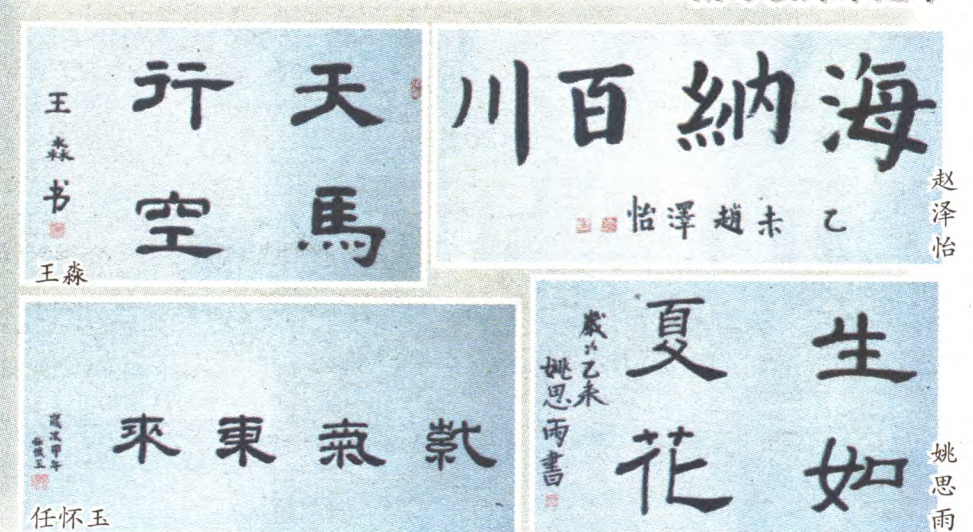 天馬
行空
王淼书
王淼
海納百川
乙未趙澤怡
赵泽怡
紫氣東來
歲次甲午
任懷玉
任怀玉
生如
夏花
歲次乙未
姚思雨書
姚思雨